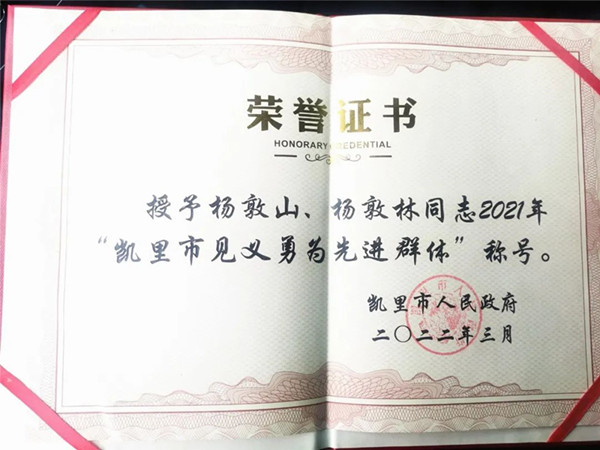 荣誉证书
HONORARY CREDENTIAL
授予杨敦山、杨敦林同志2021年
“凯里市见义勇为先进群体”称号。
凯里市人民政府
二〇二二年三月